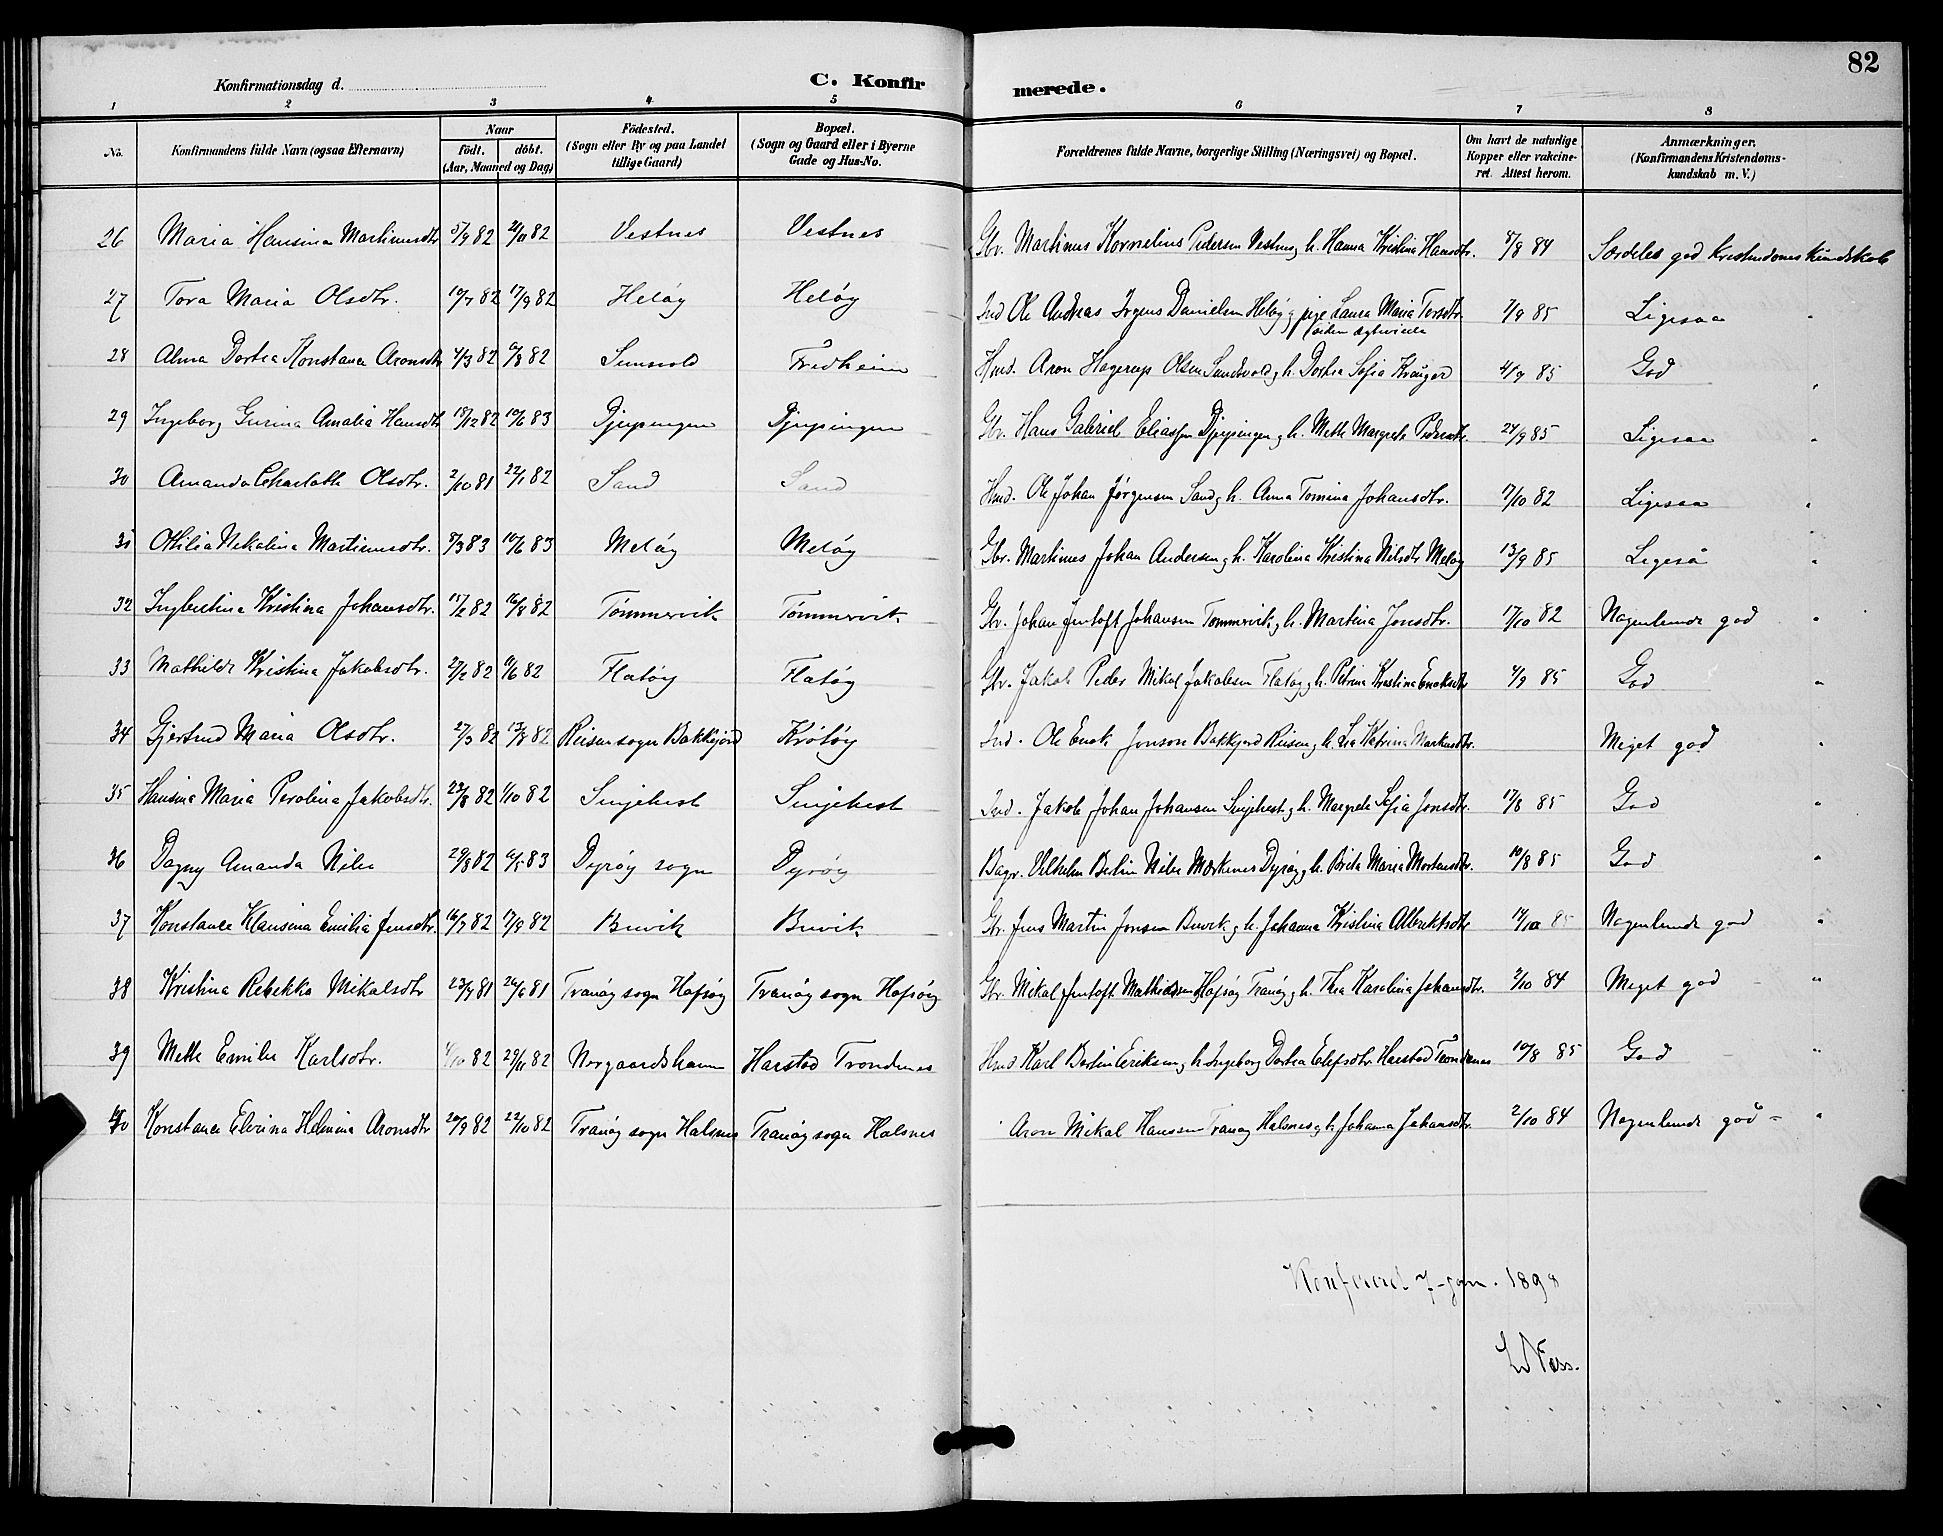 82
Konfirmationsdag d.
C. Konfir
merede.
1 2 3 4 5 6 7 8
No. Konfirmandens fulde Navn (ogsaa Efternavn) Naar födt. döbt. (Aar, Maaned og Dag) Födested. (Sogn eller By og paa Landet tillige Gaard) Bopæl. (Sogn og Gaard eller i Byerne Gade og Hus-No. Forældrenes fulde Navne, borgerlige Stilling (Næringsvei) og Bopæl. Om havt de naturlige Kopper eller vakcineret. Attest herom. Anmærkninger. (Konfirmandens Kristendomskundskab m. V.)
26 Maria Hansina Martinusdtr 5/9 82 82 Vestnes Vestnes Gbr. Martinus Kornelius Pedersen Vestnes, h. Hanna Kristina Hansdtr. 8/8 84 Særdeles god Kristendomskundskab
27 Tora Maria Olsdtr. 10/7 82 17/9 82 Heløy Heløy Ind Ole Andreas Irgens Danielsen Heløy, pige Laura Maria Torsdtr. 7/9 85 Ligesaa "
28 Alma Dortea Konstance Aronsdtr 4/3 82 6/8 82 Fredheim Hmd. Aron Hagerup Olsen Sundvold, h. Dortea Sofia Krüger 4/9 85 God "
29 Ingeborg Gurina Amalia Hansdtr 18/12 82 10/6 83 Djupingen Djupingen Gbr. Hans Gabriel Eliassen Djupingen, h. Mette Margrete Pedersdtr. 24/9 85 Ligesaa "
30 Amanda Charlotte Olsdtr. 2/10 81 22/1 82 Sand Sand Hmd. Ole Johan Jørgensen Sand, h. Anna Tomina Johansdtr. 7/10 82 Ligesaa "
31 Otilia Nekolina Martinusdtr. 83 10/6 83 Meløy Meløy Gbr. Martinus Johan Andersen, h. Karolina Kristina Nilsdtr Meløy 13/9 85 Ligeså "
32 Ingbertina Kristina Johansdtr. 82 82 Tömmervik Tömmervik Gbr. Johan Jentoft Johansen Tømmervik, h. Martina Jonsdtr. 17/10 82 Nogenlunde god "
33 Mathilde Kristina Jakobsdtr. 82 82 Flatöy Flatöy Gbr. Jakob Peder Mikal Jakobsen Flatøy, h. Petrina Kristina Enoksdtr 4/9 85 God "
34 Gjertrud Maria Olsdtr. 27/3 82 13/8 82 Reisen sogn Bakkejord Krötöy Ind. Ole Enok Jonsen Bakkejord Reisen, h. Lea Katrina Markusdtr. Meget god "
35 Hansina Maria Perolina Jakobsdtr. 23/8 82 1/10 82 Ind. Jakob Johan Johansen, h. Margrete Sofia Jonsdtr. 17/8 85 God "
36 Dagny Amanda 29/8 82 6/5 83 Dyröy sogn Dyröy Dyrøy, h. Berta Maria Mortensdtr. 10/8 85 God "
37 Konstance Klausina Emilia Jensdtr. 16/7 82 17/9 82 Buvik Buvik Gbr. Jens Martin Jonsen Buvik, h. Johanna Kristina Albriktsdtr 14/10 85 Nogenlunde god "
38 Kristina Rebekka Mikalsdtr 81 26/6 81 Tranöy sogn Hofsöy Tranöy sogn Hofsöy Gbr. Mikal Jentoft Mathiassen Hofsøy Tranøy, h. Thea Karolina Johansdtr. 2/10 84 Meget god "
39 Mette Emilie Karlsdtr. 82 29/11 82 Norgaardshamn Harstad Trondenes Hmd Karl Bertin Eriksen, h. Ingeborg Dortea Elefsdtr Harstad Trondenes 10/8 85 God "
40 Konstance Elvina Helmina Aronsdtr 20/9 82 22/10 82 Tranöy sogn Halsnes Tranöy sogn Halsnes Aron Mikal Hanssen Tranøy Halsnes, h. Johanna Johansdtr. 2/10 84 Nogenlunde god "
7 jan. 1898
Næss.